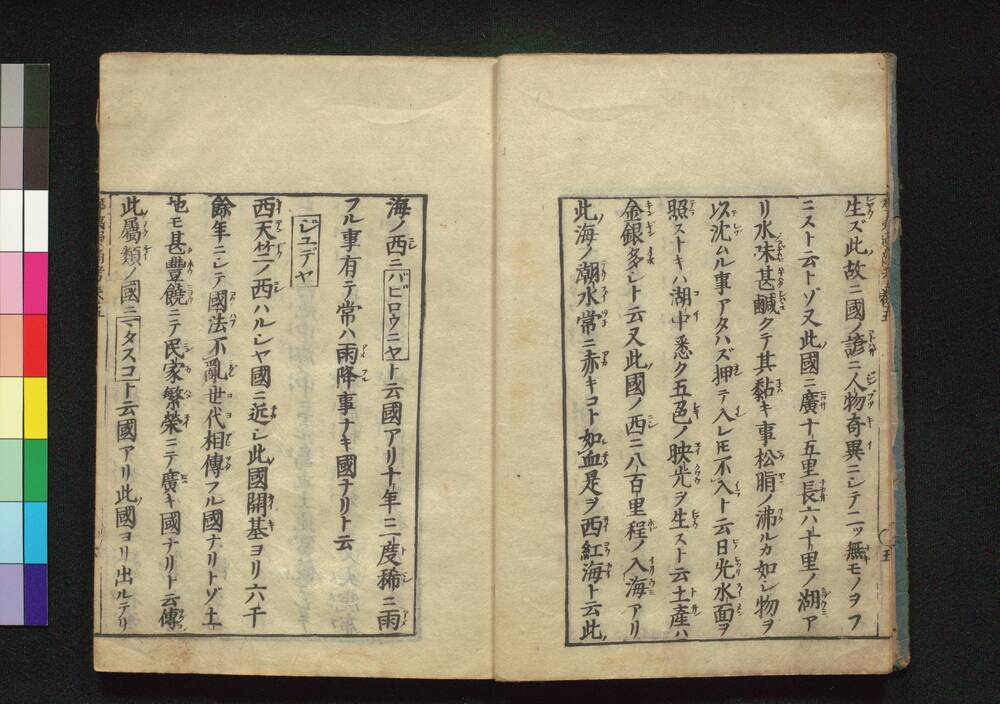 生ズ此故ニ國ノ諺ニ人物奇異ニシテ二ツ無モノヲフ
ニスト云トゾ又此國ニ廣十五里長六十里ノ湖ア
リ水味甚鹹クテ其黏キ事松脂ノ沸ルカ如シ物ヲ
以沈ムル事アタハズ押テ入レ𪜈不入ト云日光水面ヲ
照ストキハ湖中悉ク五色ノ映光ヲ生スト云土産ハ
金銀多シト云又此國ノ西ニ八百里程ノ入海アリ
此海ノ潮水常ニ赤キコト如血是ヲ西紅海ト云此
海ノ西ニバビロウニヤト云國アリ十年ニ二度稀ニ雨
フル事有テ常ハ雨降事ナキ國ナリト云
ジユデヤ
西天竺ノ西ハルシヤ國ニ近シ此國開基ヨリ六千
餘年ニシテ國法不亂世代相傳フル國ナリトゾ土
地モ甚豐饒ニテ民家繁榮ニテ廣キ國ナリト云傳
此屬類ノ國ニタマスコト云國アリ此國ヨリ出ルテリ